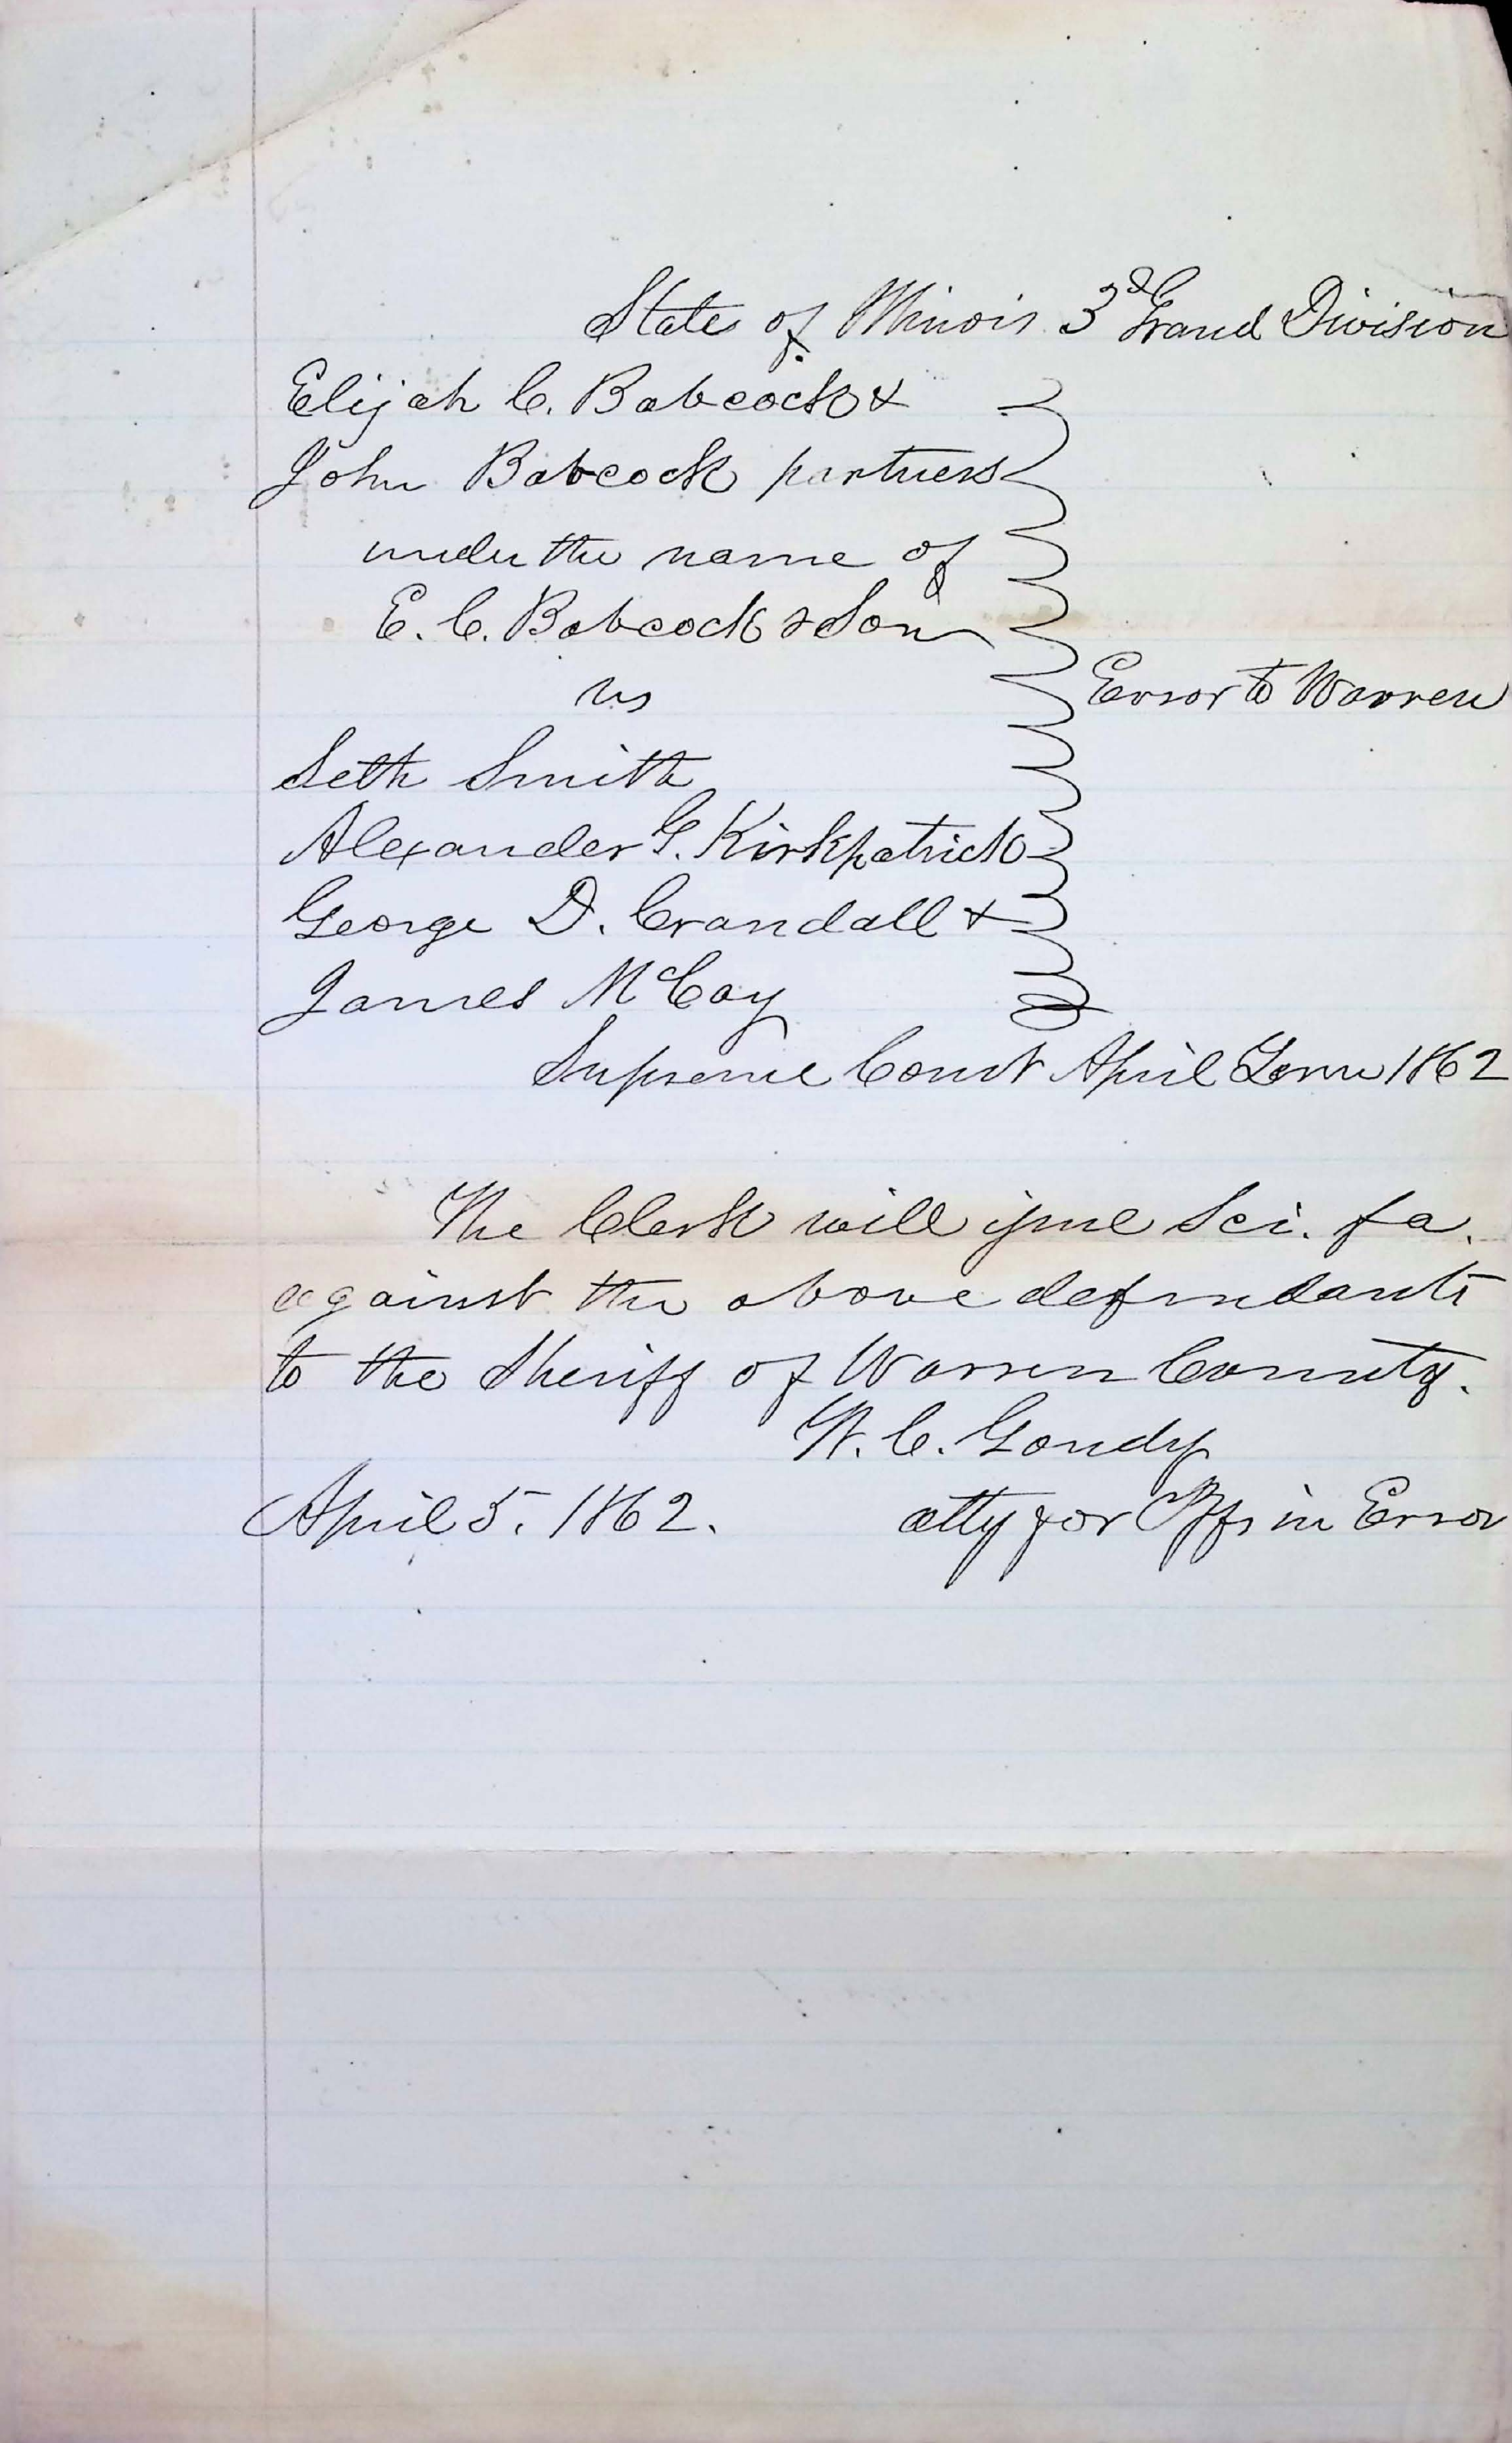 State of Illinois 3d Grand Division
Elijah C. Babcock &
John Babcock partners
under the name of
E. C. Babcock & Son
vs
Error to Warren
Seth Smith
Alexander G. Kirkpatrick
George D. Crandall &
James McCoy
Supreme Court April Term 1862
The Clerk will issue Sci. fa.
against the above defendants
to the Sheriff of Warren County.
W. C. Goudy
April 5. 1862. atty for Plffs in Error